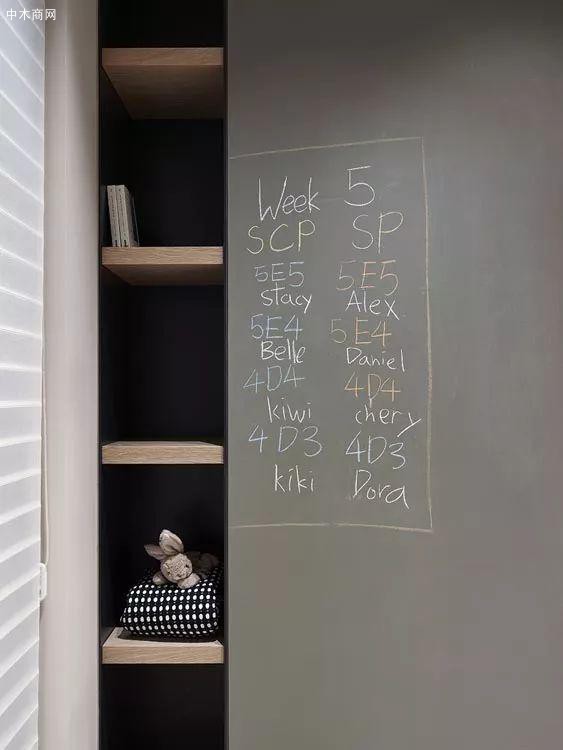 中木商网
Week 5
SCP SP
5E5 5E5
stacy Alex
5E4 5E4
Belle Daniel
4D4 4D4
kiwi chery
4D3 4D3
kiki Dora